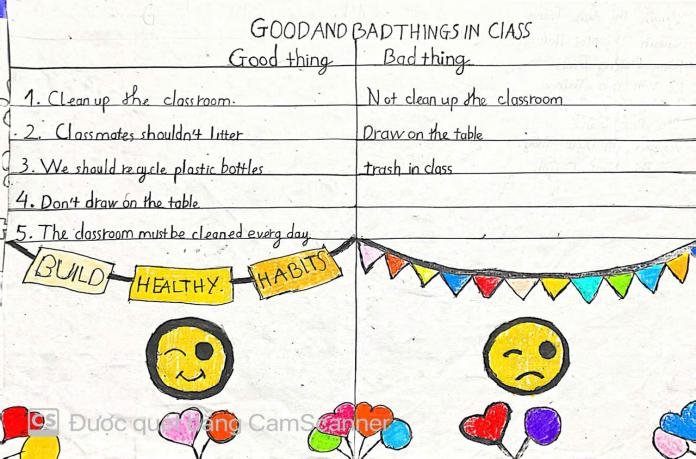 GOOD AND BAD THINGS IN CLASS
Good thing Bad thing
1. Clean up the classroom. Not clean up the classroom
2. Classmates shouldn't litter Draw on the table
3. We should recycle plastic bottles trash in class
4. Don't draw on the table
5. The classroom must be cleaned every day.
BUILD HEALTHY HABITS
CS Được quét bằng CamScanner